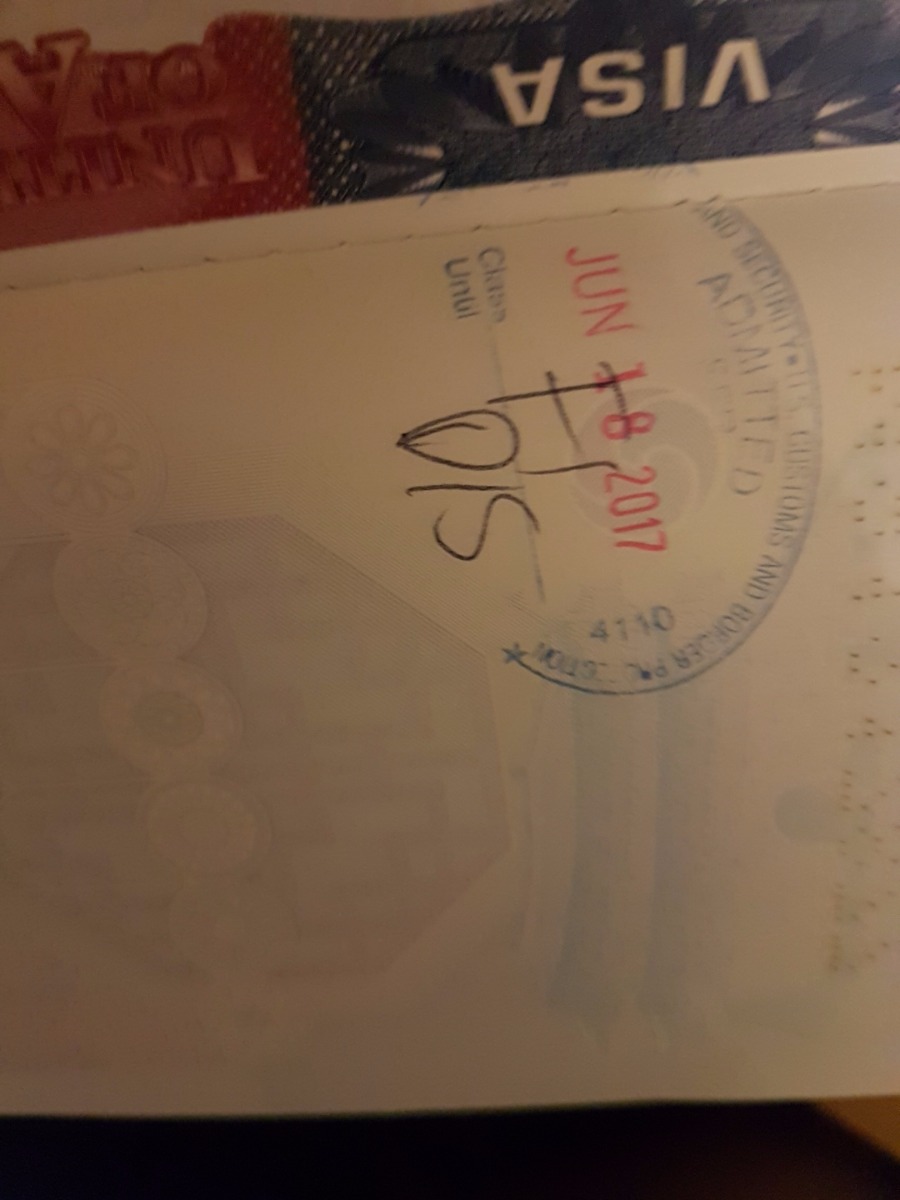 VISA
UNITE
OF A
ND SECURITY • U.S. CUSTOMS AND BORDER
ADMITTED
JUN 18 2017
Class F1
Until D/S
4110